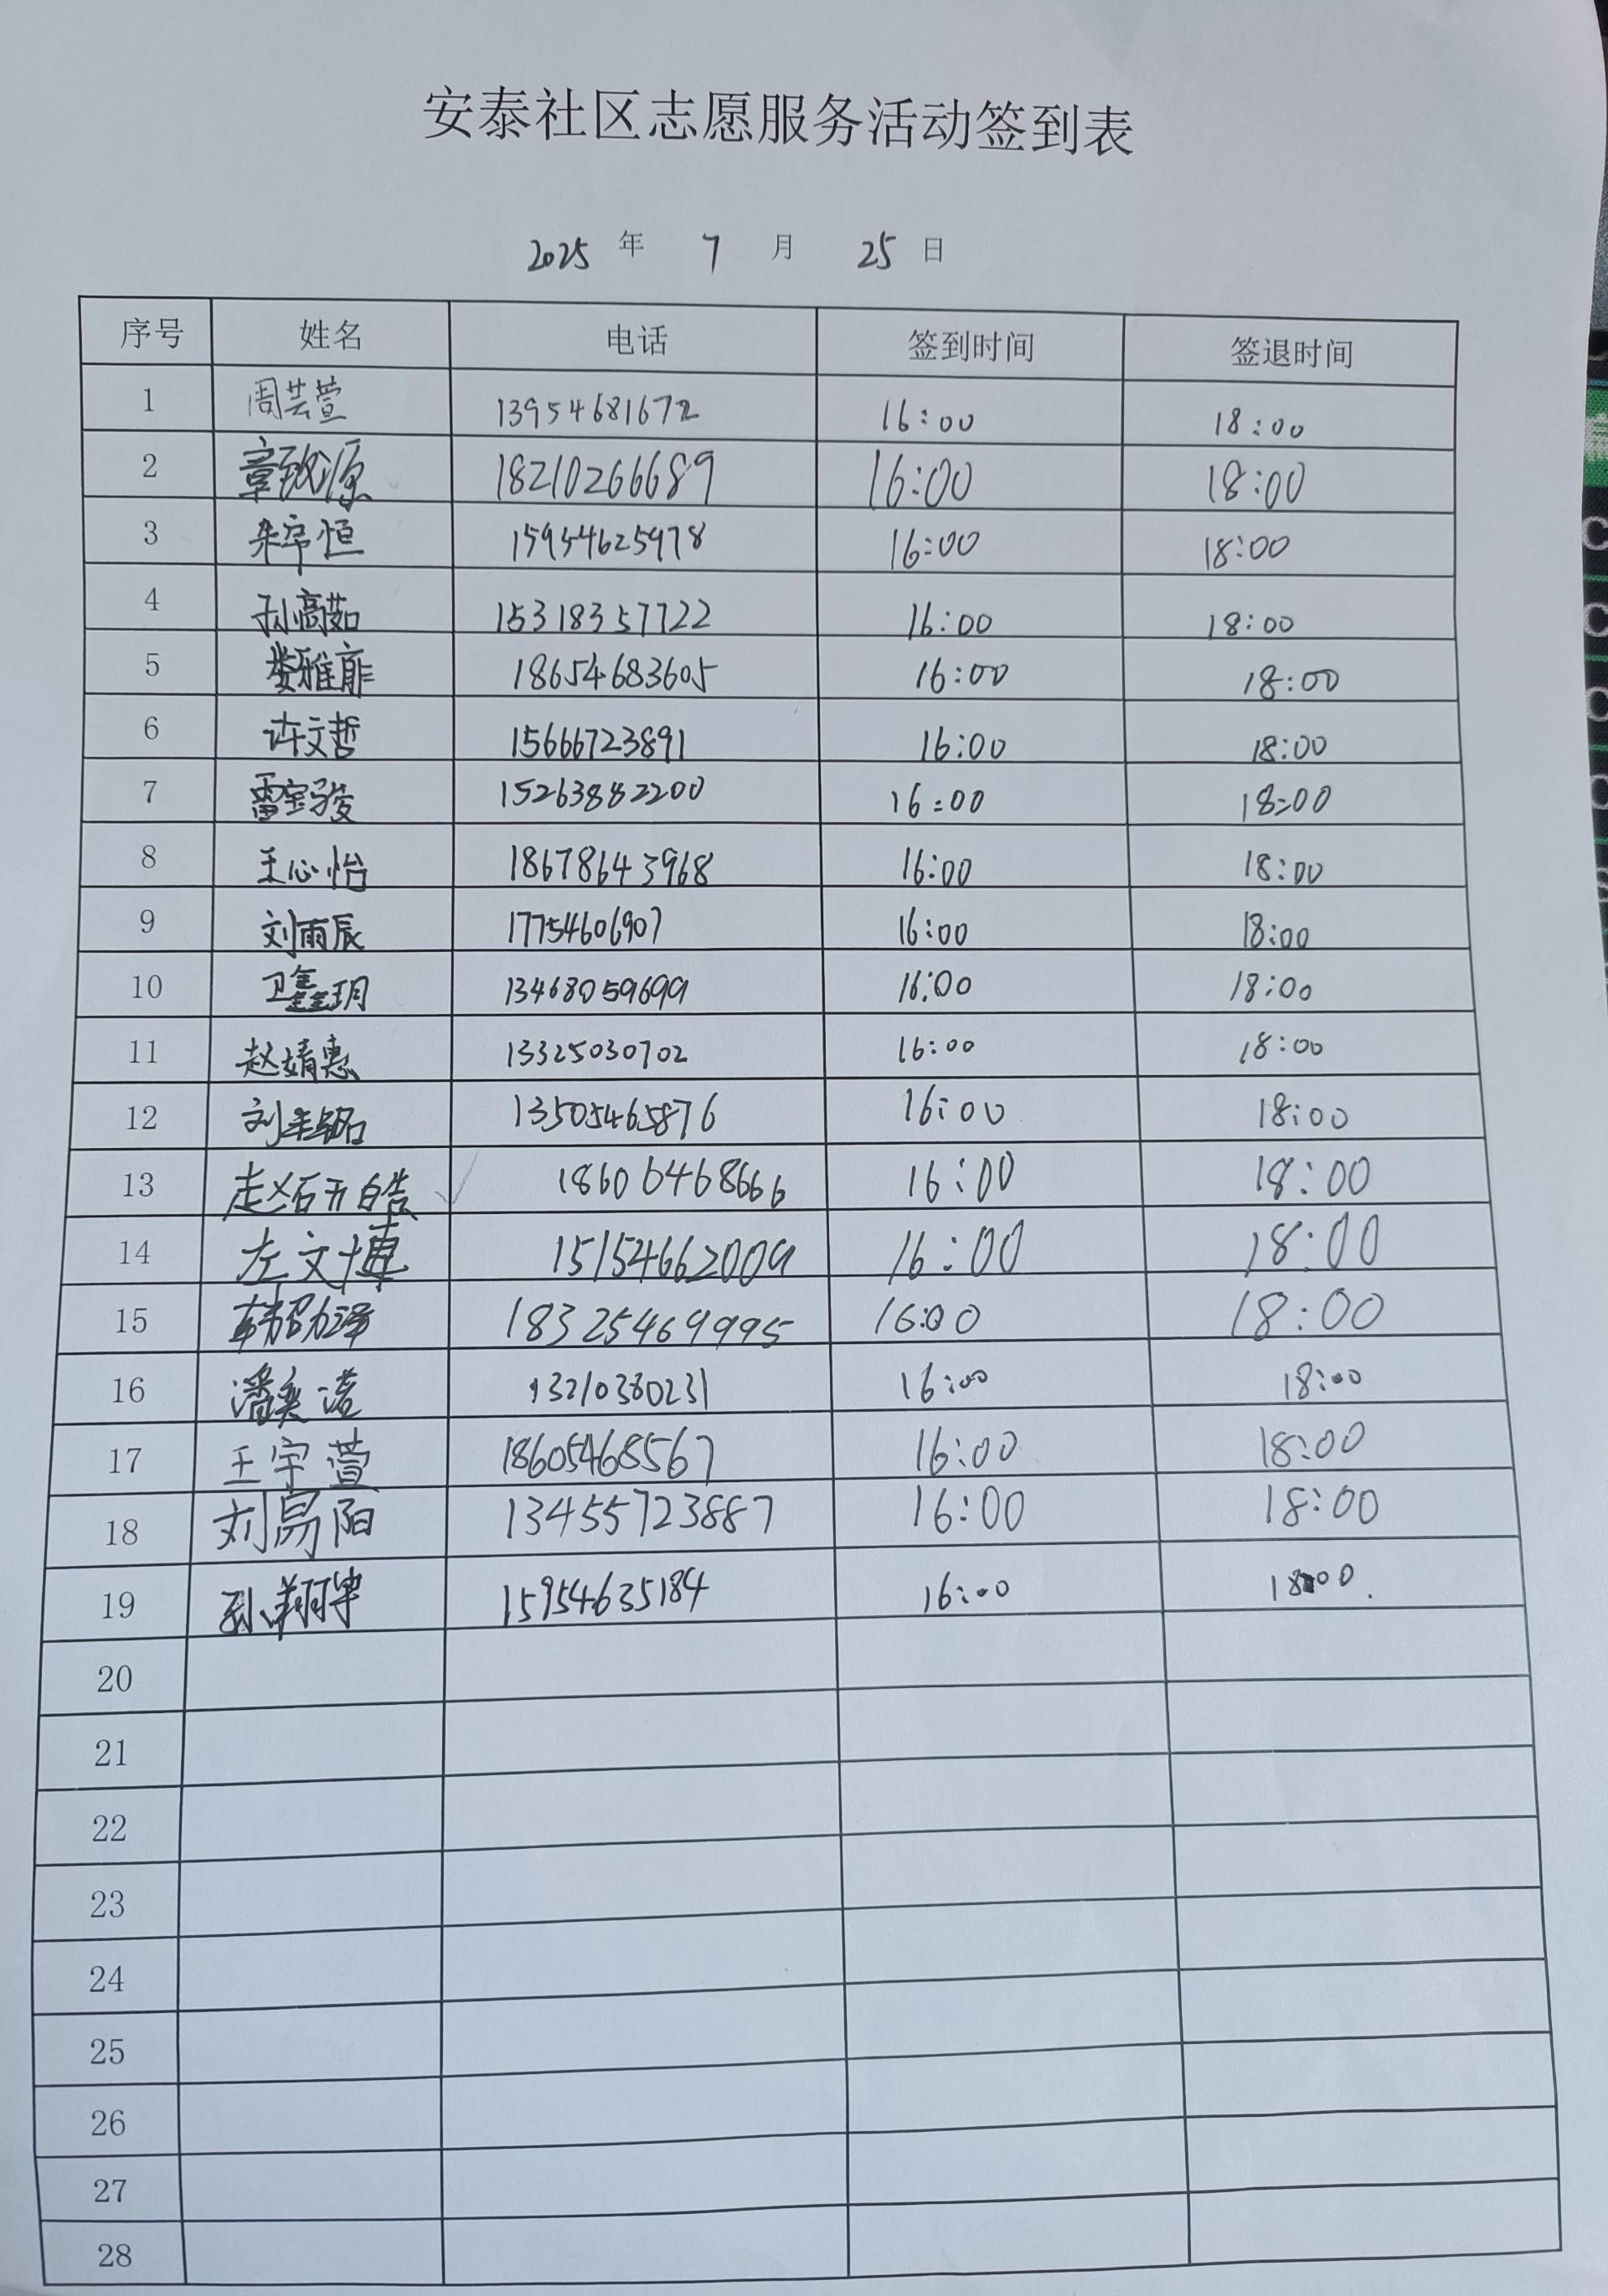 安泰社区志愿服务活动签到表
2025 年 7 月 25 日
序号 姓名 电话 签到时间 签退时间
1 周芸萱 13954681672 16:00 18:00
2 章致源 18210266689 16:00 18:00
3 朱宇恒 15954625978 16:00 18:00
4 孙高茹 15318357722 16:00 18:00
5 娄雅 18654683605 16:00 18:00
6 许文哲 15666723891 16:00 18:00
7 雷宝骏 15263882200 16:00 18:00
8 王心怡 18678643968 16:00 18:00
9 刘雨辰 17754606907 16:00 18:00
10 卫鑫玥 13468059699 16:00 18:00
11 赵婧惠 13325030702 16:00 18:00
12 刘 13505465876 16:00 18:00
13 赵研皓 18606468666 16:00 18:00
14 左文博 15154662009 16:00 18:00
15 韩邵泽 18325469995 16:00 18:00
16 潘奕诺 13210380231 16:00 18:00
17 王宇萱 18605468567 16:00 18:00
18 刘易阳 13455723887 16:00 18:00
19 孙翔宇 15954635184 16:00 18:00
20
21
22
23
24
25
26
27
28